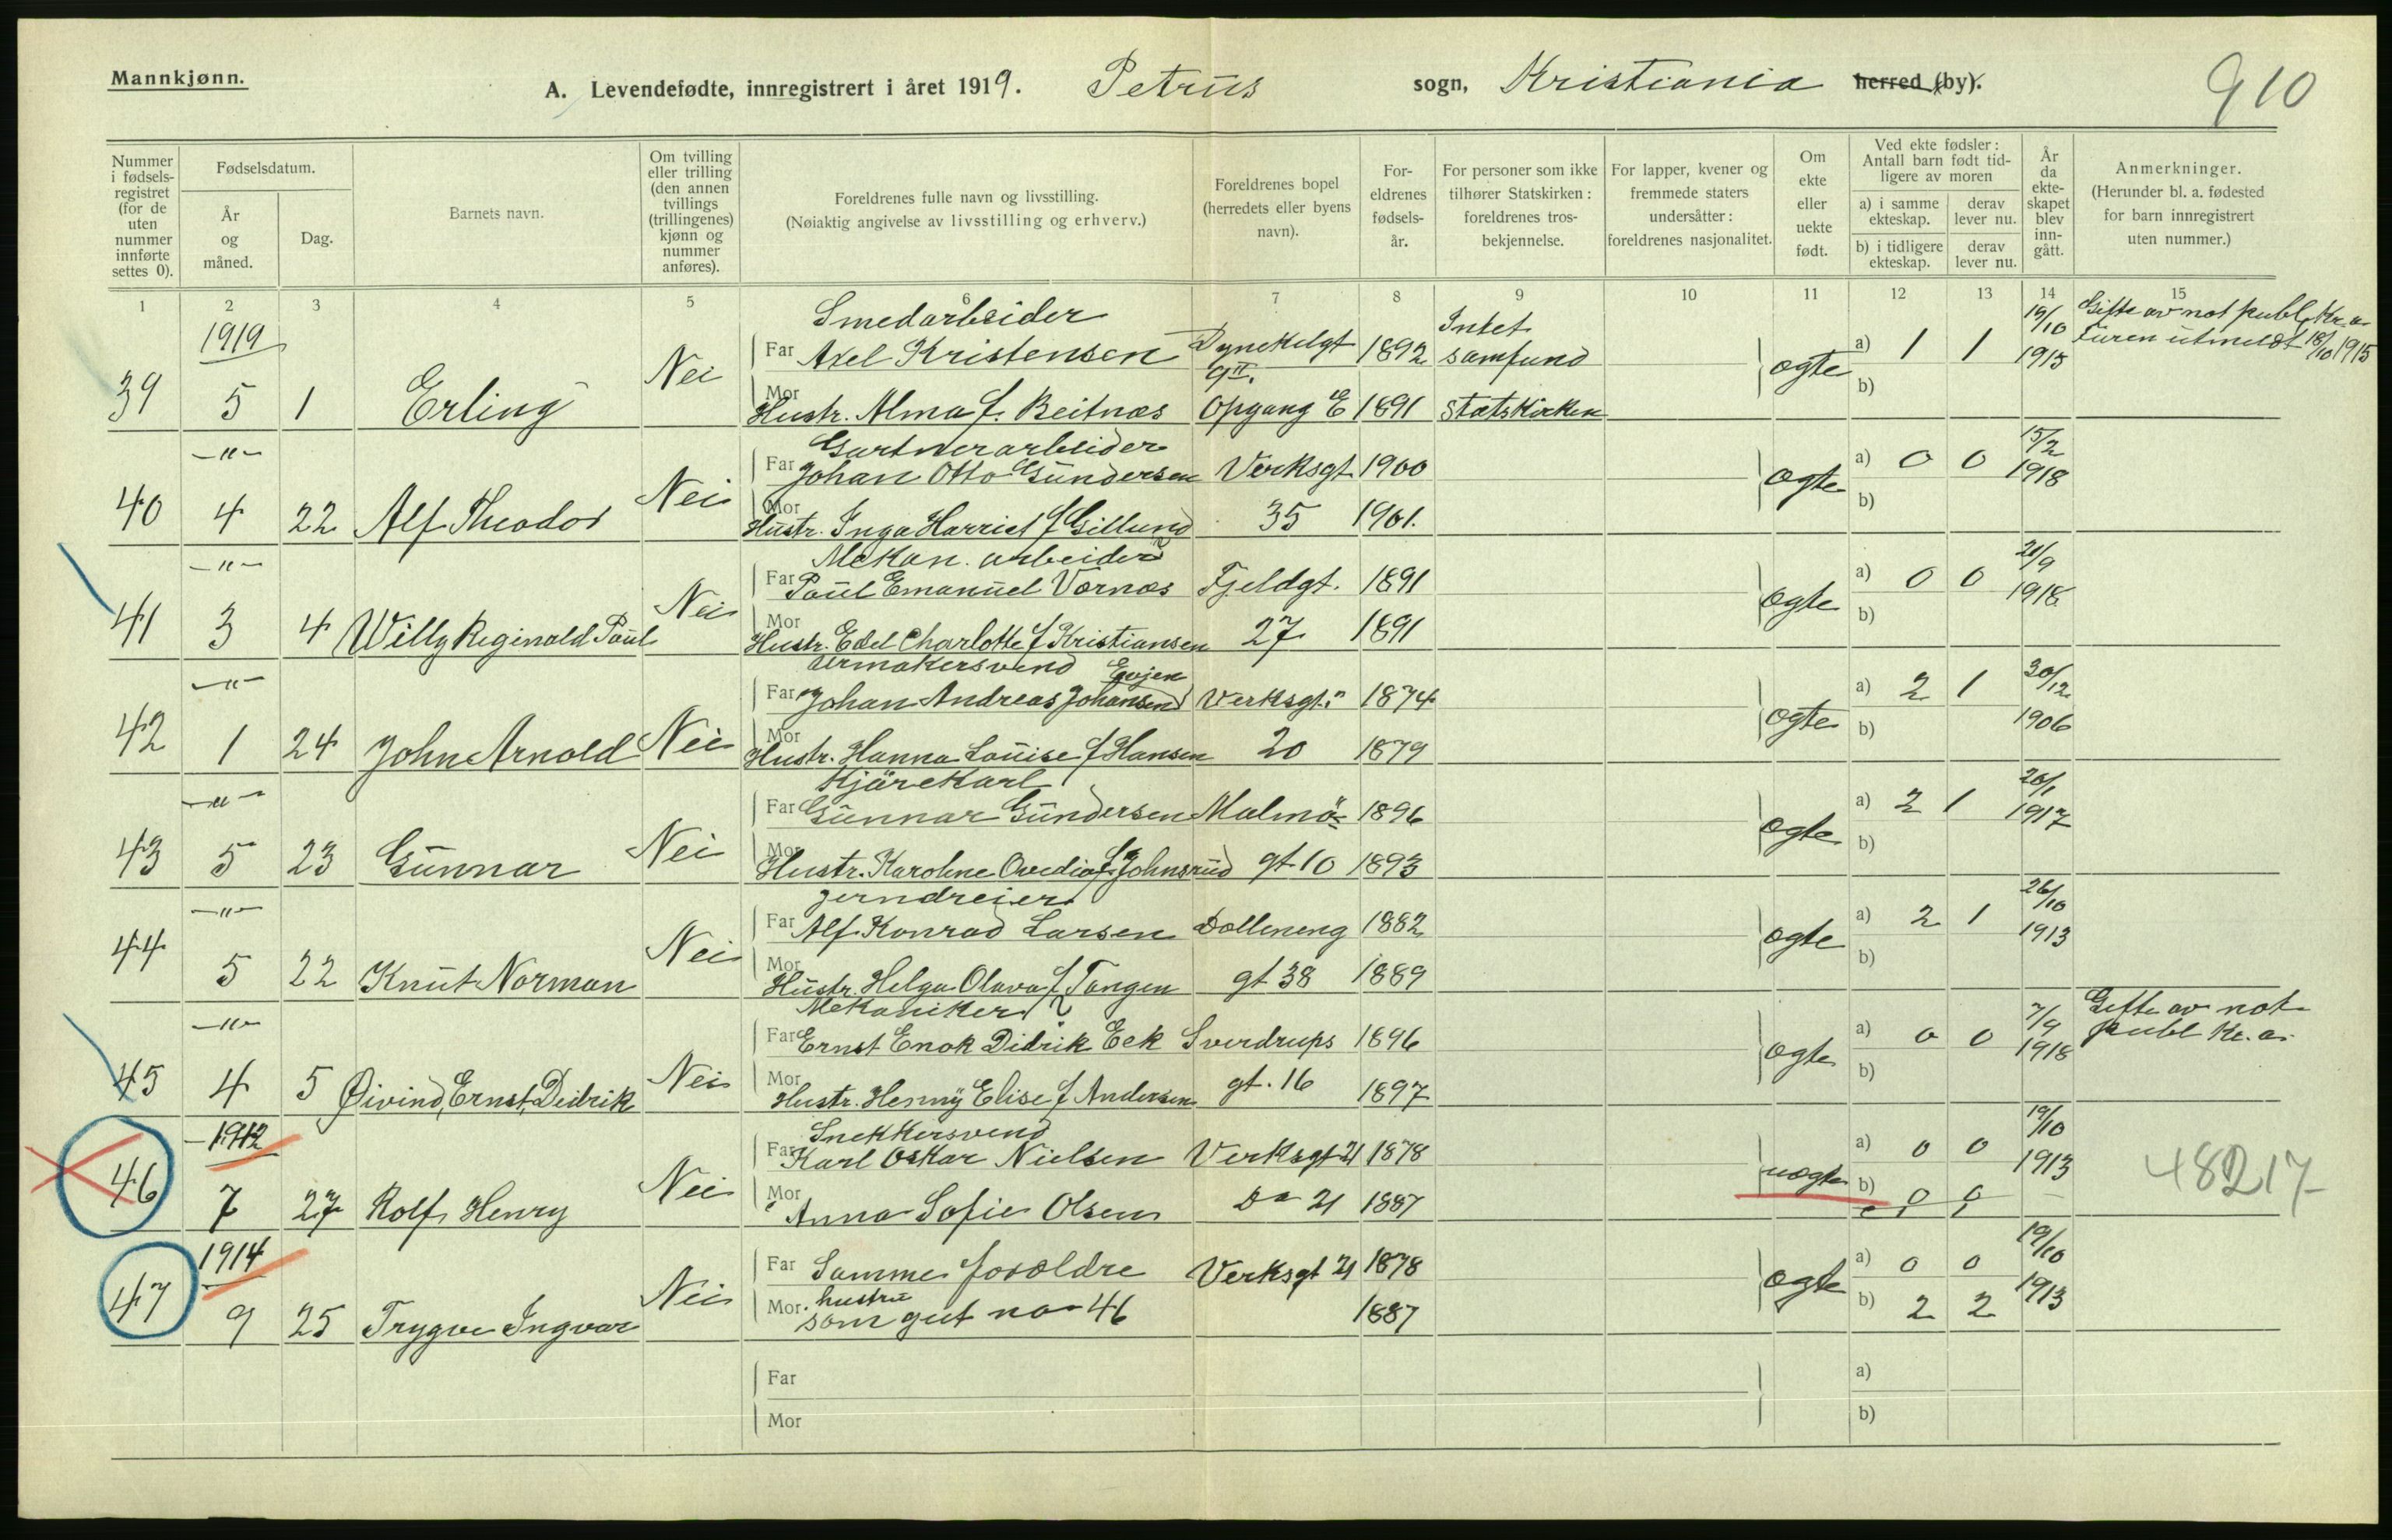 Mannkjønn.
A. Levendefødte, innregistrert i året 1919. Petrus sogn, Kristiania herred (by).
910
Nummer i fødsels-registret (for de uten nummer innførte settes 0).
Fødselsdatum.
År og måned.
Dag.
Barnets navn.
Om tvilling eller trilling (den annen tvillings (trillingenes) kjønn og nummer anføres).
Foreldrenes fulle navn og livsstilling.
(Nøiaktig angivelse av livsstilling og erhverv.)
Foreldrenes bopel (herredets eller byens navn).
For-eldrenes fødsels-år.
For personer som ikke tilhører Statskirken: foreldrenes tros-bekjennelse.
For lapper, kvener og fremmede staters undersåtter: foreldrenes nasjonalitet.
Om ekte eller uekte født.
Ved ekte fødsler: Antall barn født tid-ligere av moren
a) i samme ekteskap.
derav lever nu.
b) i tidligere ekteskap.
derav lever nu.
År da ekte-skapet blev inn-gått.
Anmerkninger.
(Herunder bl. a. fødested for barn innregistrert uten nummer.)
1 2 3 4 5 6 7 8 9 10 11 12 13 14 15
1919 Smedarbeider Intet 19/10 Gifte av not publ. Kr.a
Far Axel Kristensen Dynekilgt 1892 samfund a) 1 1 1915 Faren utmeldt 18/10 1915
39 5 1 Erling Nei 9 II. ægte b)
Mor Hustr. Alma f. Beitnæs Opgang E 1891 Statskirken
—"— Gartnerarbeider 15/2
Far Johan Otto Gundersen Verksgt 1900 a) 0 0 1918
40 4 22 Alf Theodor Nei ægte b)
Mor Hustr. Inga Harriet f Gillund 35 1901.
—"— Mekan. arbeider 21/9
Far Paul Emanuel Vornæs Fjeldgt. 1891 a) 0 0 1918
41 3 4 Willy Reginald Paul Nei ægte b)
Mor Hustr. Edel Charlotte f Kristiansen 27 1891
—"— Evjen 30/12
Far Johan Andreas Johansen Verksgt. 1874 a) 2 1 1906
42 1 24 John Arnold Nei ægte b)
Mor Hustr. Hanna Louise f Hansen 20 1879
—"— Kjørekarl 20/1
Far Gunnar Gundersen Malmö- 1896 a) 2 1 1917
43 5 23 Gunnar Nei ægte b)
Mor Hustr. Karoline Ovedia f. Johnsrud gt 10 1893
—"— Jerndreier 26/10
Far Alf Konrad Larsen Dælleneng 1882 a) 2 1 1913
44 5 22 Knut Norman Nei ægte b)
Mor Hustr. Helga Olava f Tangen gt 38 1889
—"— Mekaniker 7/9 Gifte av not
Far Ernst Enok Didrik Eek Sverdrups 1896 a) 0 0 1918 publ Kr. a.
45 4 5 Øivind, Ernst, Deidrik Nei ægte b)
Mor Hustr. Henny Elise f Andersen gt. 16 1897
1912 Snekkersvend 19/10
Far Karl Oskar Nielsen Verksgt 21 1878 a) 0 0 1913 48217
46 7 27 Rolf Henry Nei uægte b) 0 0
Mor Anna Sofie Olsen Do 21 1887
1914 19/10
Far Samme forældre Verksgt 21 1878 a) 0 0 1913
47 9 25 Trygve Ingvar Nei ægte b) 2 2
Mor hustru
som gut no 46 1887
Far a)
Mor b)